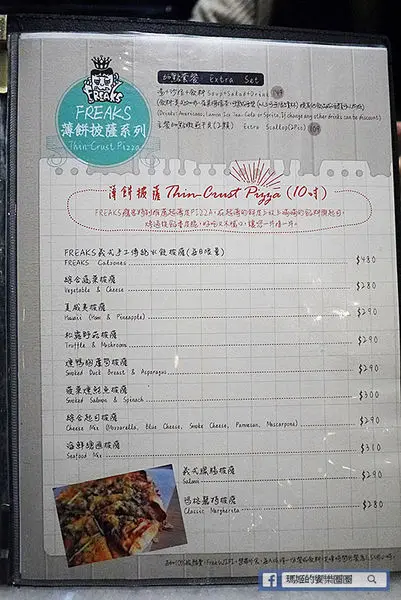 FREAKS
FREAKS
薄餅披薩系列
Thin-Crust Pizza
加點套餐 Extra Set
濃湯+沙拉+飲料 Soup+Salad+Drink
Extra Scallop(2Pics)
薄餅披薩 Thin-Crust Pizza (10吋)
FREAKS義式手工傳統水餃披薩(每日限量)
FREAKS Calzones $480
綜合蔬菜披薩
Vegetable & Cheese $280
夏威夷披薩
Hawaii (Ham & Pineapple) $290
松露野菇披薩
Truffle & Mushroom $290
燻鴨胸蘆筍披薩
Smoked Duck Breast & Asparagus $290
菠菜燻鮭魚披薩
Smoked Salmon & Spinach $300
綜合起司披薩
Cheese Mix (Mozzarella, Blue Cheese, Smoke Cheese, Parmesan, Mascarpone) $290
海鮮總匯披薩
Seafood Mix $310
義式臘腸披薩
Salami $290
瑪格麗特披薩
Classic Margherita $280
瑪姬的饗樂圈圈